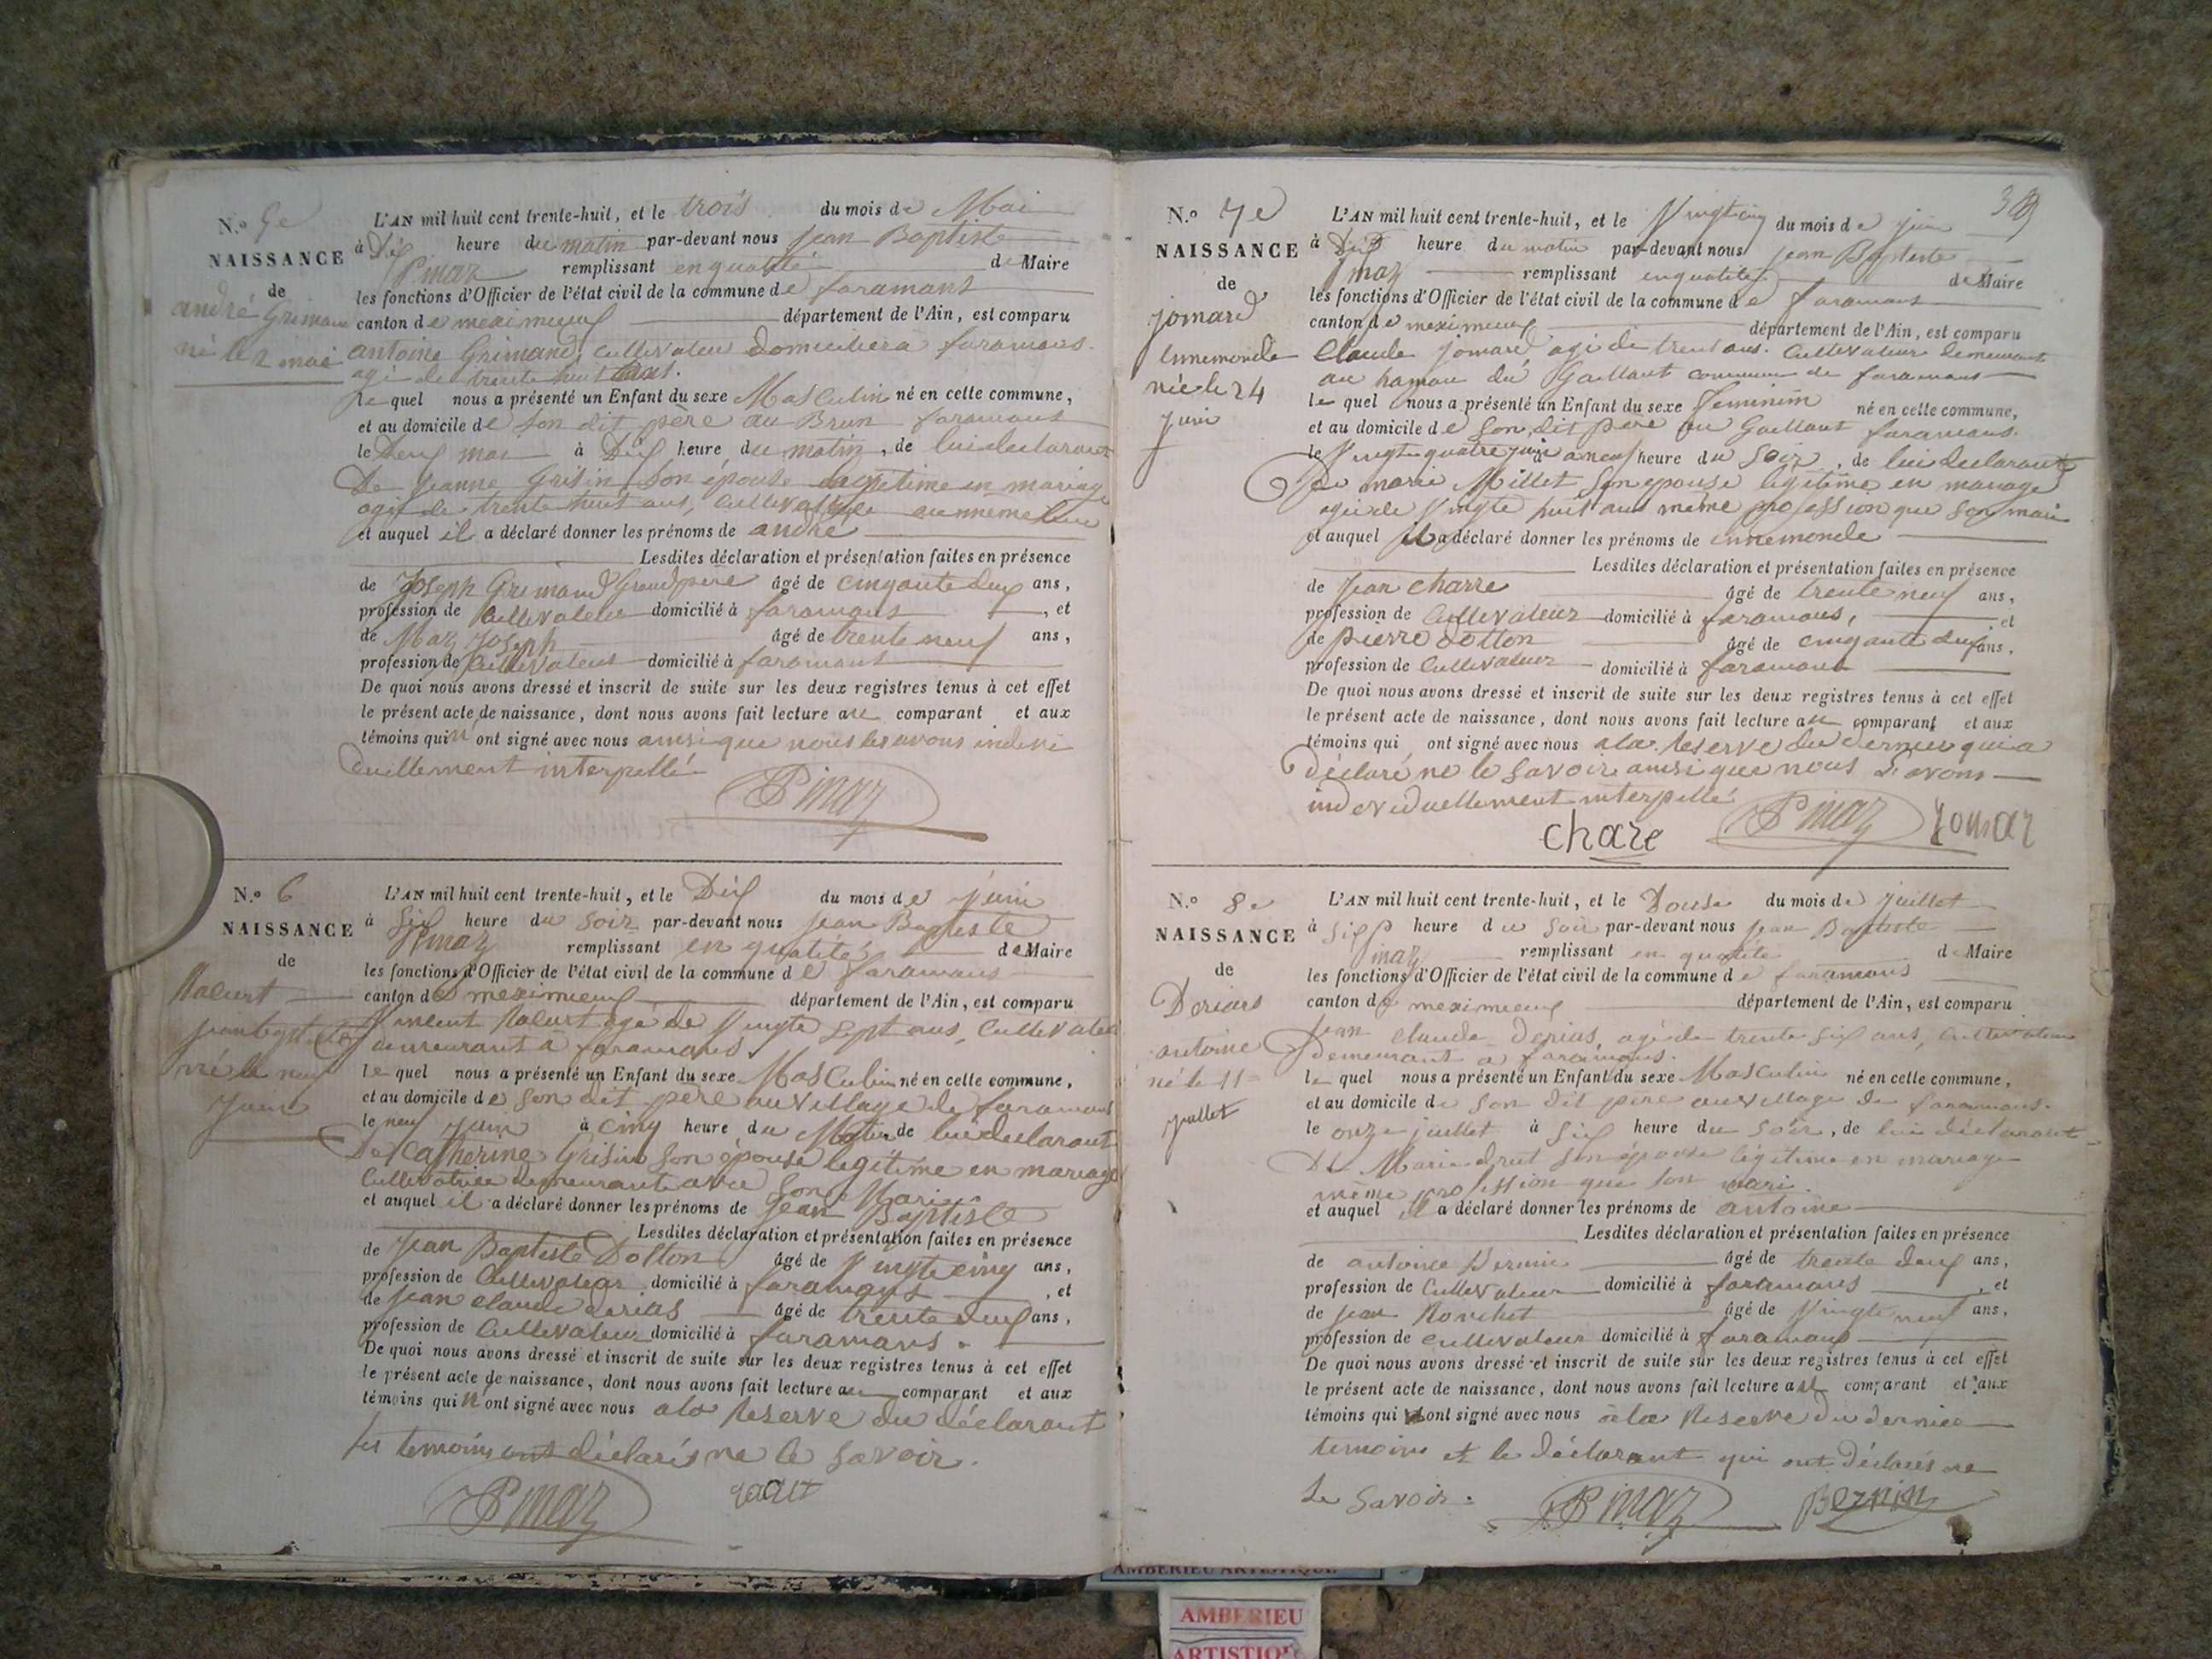 N.º 5e
NAISSANCE
de
andré Grimand
né le 2 mai
L'AN mil huit cent trente-huit, et le trois du mois de Mai
à Dix heure du matin par-devant nous Jean Baptiste
Pinaz remplissant en qualité de Maire
les fonctions d'Officier de l'état civil de la commune de faramans
canton de meximieux département de l'Ain, est comparu
antoine Grimand, cultivateur domicilié à faramans.
agé de trente huit ans.
le quel nous a présenté un Enfant du sexe Masculin né en cette commune,
et au domicile de son dit père au Brun faramans
le Deux mai à Dix heure du matin, de lui declarant
De Jeanne Grisin son épouse legitime en mariage
agée de trente huit ans, cultivatrice au même lieu
et auquel il a déclaré donner les prénoms de andré
Lesdites déclaration et présentation faites en présence
de Joseph Grimand Grand père âgé de cinqante deux ans,
profession de Cultivateur domicilié à faramans, et
de Maz Joseph âgé de trente neuf ans,
profession de Cultivateur domicilié à faramans
De quoi nous avons dressé et inscrit de suite sur les deux registres tenus à cet effet
le présent acte de naissance, dont nous avons fait lecture au comparant et aux
témoins qui n'ont signé avec nous ainsi que nous les avons indivi
duellement interpellé
Pinaz
N.º 6
NAISSANCE
de
jean baptiste
né le neuf
Juin
L'AN mil huit cent trente-huit, et le Dix du mois de Juin
à Six heure du Soir par-devant nous Jean Baptiste
Pinaz remplissant en qualité de Maire
les fonctions d'Officier de l'état civil de la commune de faramans
canton de meximieux département de l'Ain, est comparu
Vincent agé de Vingte Sept ans, Cultivateur
demeurant a faramans
le quel nous a présenté un Enfant du sexe Masculin né en cette commune,
et au domicile de son dit père au village de faramans
le neuf juin à cinq heure du Matin de lui declarant
De Catherine Grisin son épouse legitime en mariage
Cultivatrice demeurante avec son Mari
et auquel il a déclaré donner les prénoms de Jean Baptiste
Lesdites déclaration et présentation faites en présence
de Jean Baptiste Dotton âgé de Vingte cinq ans,
profession de Cultivateur domicilié à faramans, et
de jean claude derias âgé de trente deux ans,
profession de Cultivateur domicilié à faramans.
De quoi nous avons dressé et inscrit de suite sur les deux registres tenus à cet effet
le présent acte de naissance, dont nous avons fait lecture au comparant et aux
témoins qui n'ont signé avec nous a la Reserve du déclarant
les temoins ont déclarés ne le savoir.
Pinaz
N.º 7e
NAISSANCE
de
jomard
Ennemonde
née le 24
Juin
38
L'AN mil huit cent trente-huit, et le Vingt cinq du mois de juin
à Dix heure du matin par-devant nous Jean Baptiste
Pinaz remplissant en qualité de Maire
les fonctions d'Officier de l'état civil de la commune de faramans
canton de meximieux département de l'Ain, est comparu
Claude jomard agé de trent ans. Cultivateur demeurant
au hamau du Gaillant commune de faramans
le quel nous a présenté un Enfant du sexe feminin né en cette commune,
et au domicile de son dit père au Gaillant faramans.
le Vingte quatre juin a neuf heure du Soir, de lui declarante
De marie Millet son epouse légitime en mariage
agée de Vingte huit ans même profession que son mari
et auquel il a déclaré donner les prénoms de ennemonde
Lesdites déclaration et présentation faites en présence
de Jean charre âgé de trente neuf ans,
profession de Cultivateur domicilié à faramans, et
de pierre dotton âgé de cinqante deux ans,
profession de Cultivateur domicilié à faramans
De quoi nous avons dressé et inscrit de suite sur les deux registres tenus à cet effet
le présent acte de naissance, dont nous avons fait lecture au comparant et aux
témoins qui ont signé avec nous a la Reserve du dernier qui a
déclaré ne le savoir ainsi que nous l'avons
individuellement interpellé
chare Pinaz Jomar
N.º 8e
NAISSANCE
de
Deriars
antoine
né le 11
juillet
L'AN mil huit cent trente-huit, et le Douse du mois de juillet
à Six heure du Soir par-devant nous Jean Baptiste
Pinaz remplissant en qualité de Maire
les fonctions d'Officier de l'état civil de la commune de faramans
canton de meximieux département de l'Ain, est comparu
Jean claude Derias, agé de trente six ans, Cultivateur
demeurant a faramans.
le quel nous a présenté un Enfant du sexe Masculin né en cette commune,
et au domicile de son dit père au village de faramans.
le onze juillet à Six heure du Soir, de lui déclarant
De Marie druet son épouse légitime en mariage
même profession que son mari.
et auquel il a déclaré donner les prénoms de antoine
Lesdites déclaration et présentation faites en présence
de antoine Bernin âgé de trente deux ans,
profession de Cultivateur domicilié à faramans, et
de jean Ronchet âgé de Vingte neuf ans,
profession de cultivateur domicilié à faramans
De quoi nous avons dressé et inscrit de suite sur les deux registres tenus à cet effet
le présent acte de naissance, dont nous avons fait lecture au comparant et aux
témoins qui ont signé avec nous a la Reserve du dernier
temoins et le déclarant qui ont déclarés ne
le Savoir.
Pinaz Bernin
AMBERIEU ARTISTIQUE
AMBERIEU
ARTISTIQUE